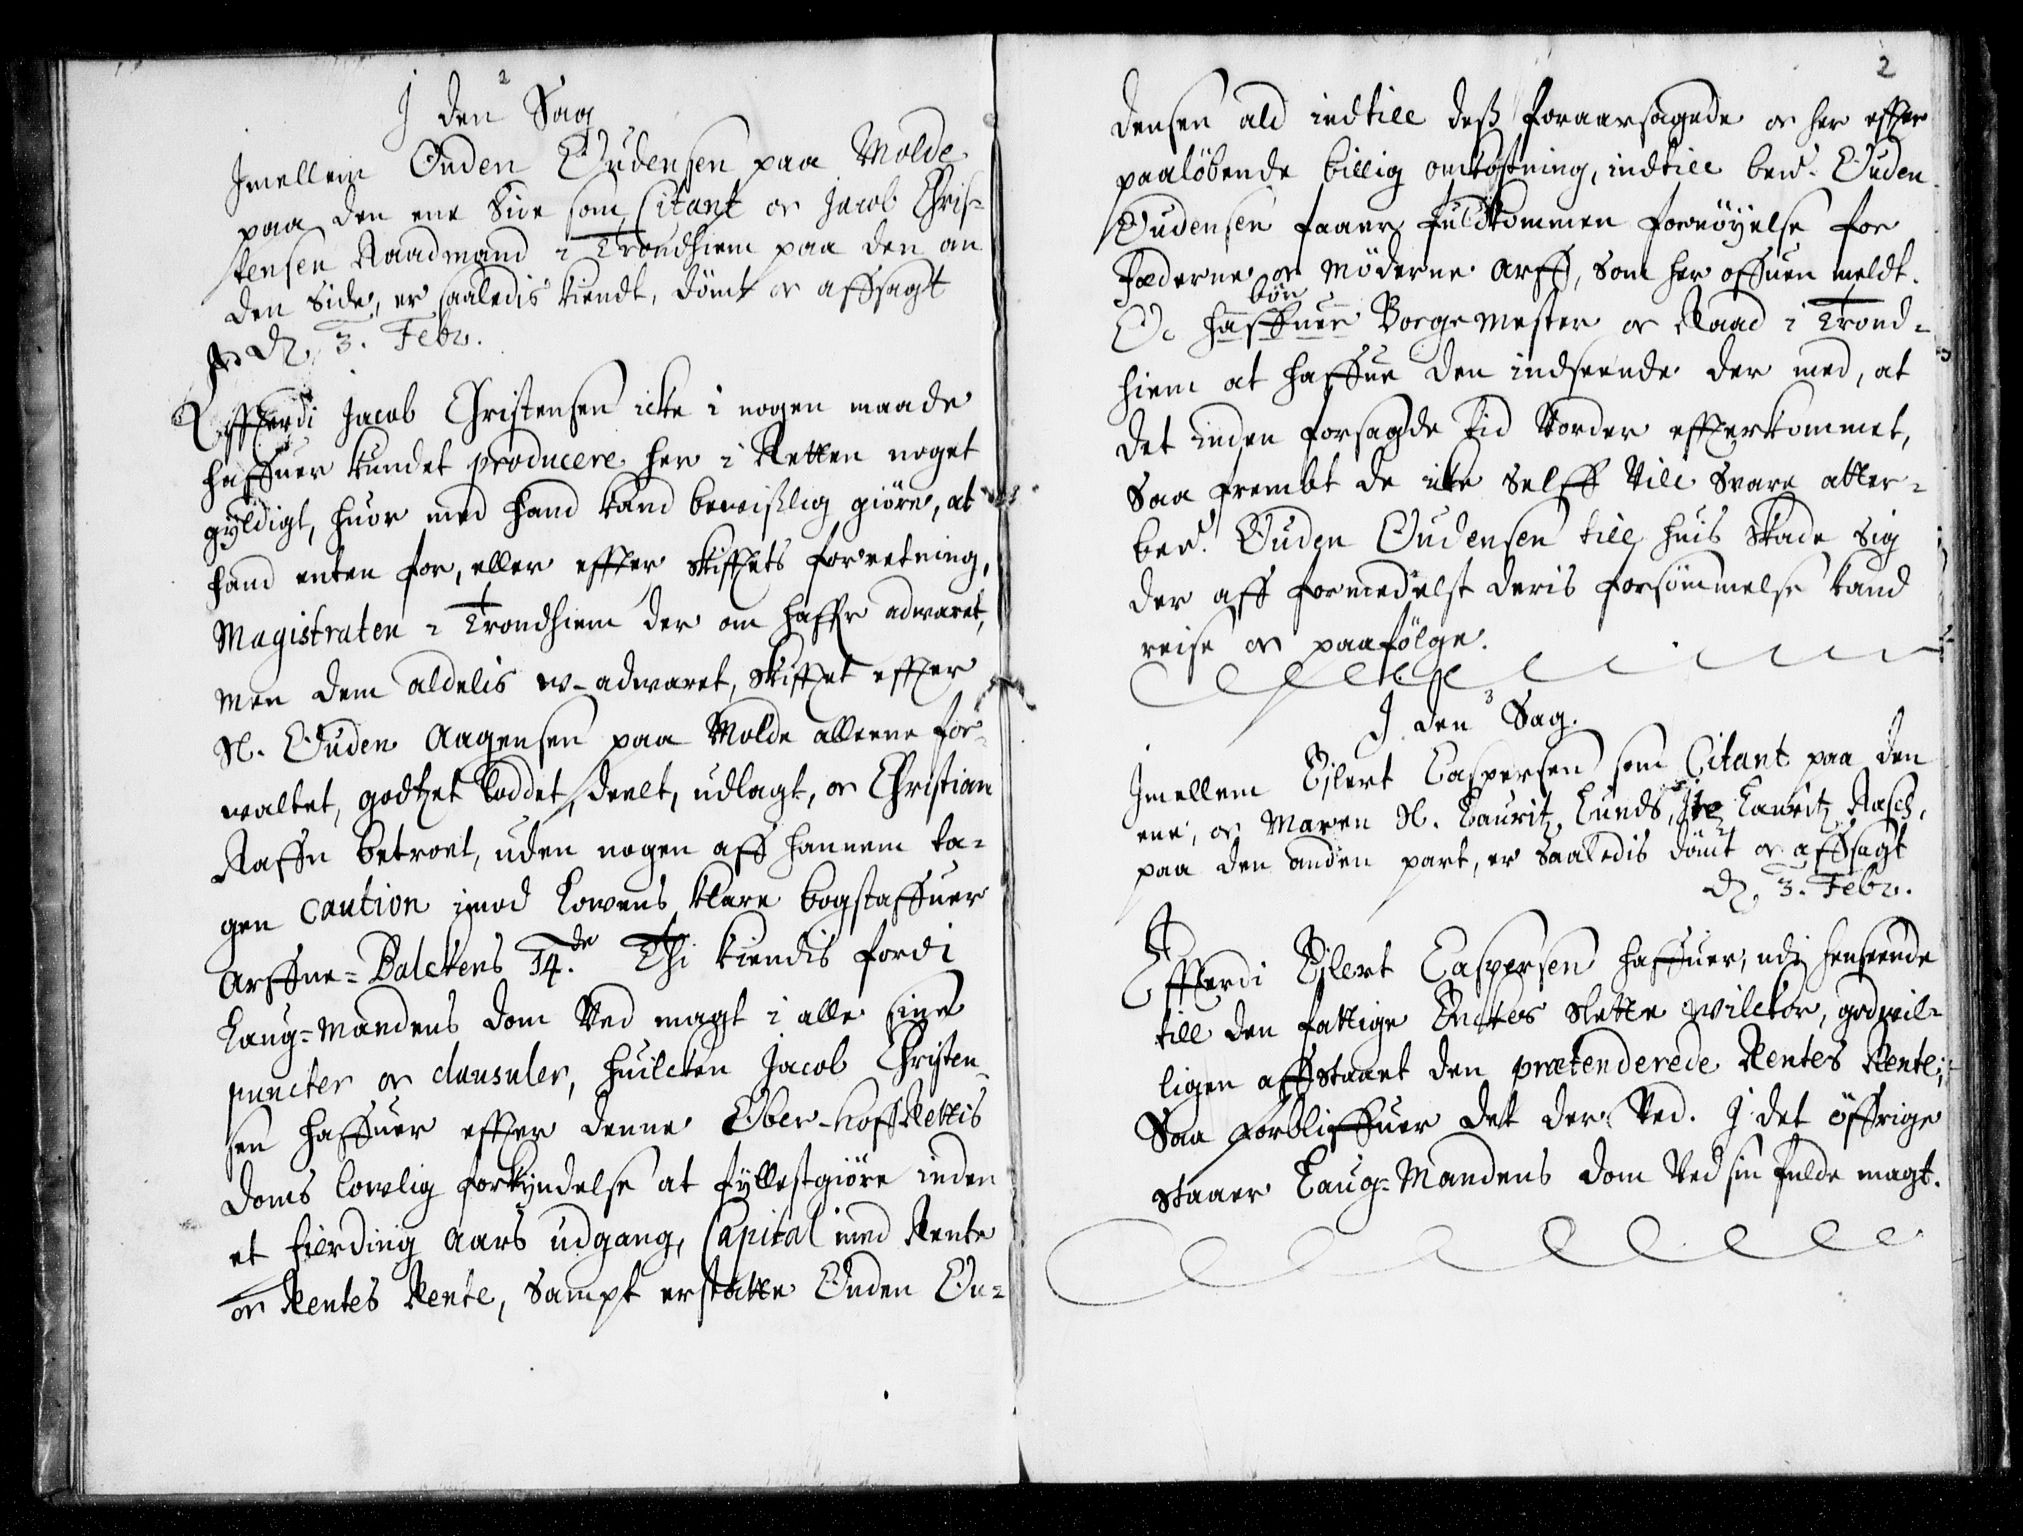 J den 2 Sag
Jmellem Ouden Oudensen paa Molde
paa den ene Side som Citant oc Jacob Chris-
tensen Raadmand i Trondhiem paa den an
den Side, er saaledis kiendt, dömt oc affsagt
dn 3. Febr.
Effterdi Jacob Christensen icke i nogen maade
haffuer kundet producere her i Retten noget
gyldigt, huor med hand kand bevislig giöre, at
hand enten for, eller effter skifftets forretning,
Magistraten i Trondhiem der om haffr adwaret,
men dem aldelis u-adwaret, skifftet effter
Sl. Ouden Aagensen paa Molde alleene for-
waltet, godtzet loddet, deelt, udlagt, oc Christian
Raffn betroet, uden nogen aff hannem ta-
gen Caution imod Lowens klare bogstaffuer
Arffue-Balckens 14.de Thi kiendis fordi
Laug-Mandens dom Ved magt i alle sine
puncter oc clausuler, huilcken Jacob Christen-
sen haffuer effter denne Ober-hoffRettis
Doms lowlig forkyndelse at fyllestgiöre inden
et fierding Aars udgang, Capital med Rente
oc Rentes Rente, Sampt erstatte Ouden Ou-
2
densen ald indtill dess foraarsagede oc her effter
paalöbende billig omkostning, indtill bem.te Ouden
Oudensen faaer fuldkommen fornöyelse for
Fæderne oc Möderne Arff, som her offuen meldt.
bör
Oc haffuer Borgemester oc Raad i Trond-
hiem at haffue den indseende der med, at
det inden forsagde tid Vorder effterkommet,
Saa frembt de icke Selff Vill Svare atter-
bem.te Ouden Oudensen till huis Skade Sig
der aff formedelst deris forsömmelse kand
reise oc paafölge.
J den 3 Sag.
Jmellem Eilert Caspersen som Citant paa den
ene, oc Maren Sl. Lauritz Lunds, Lauritz Rasch,
paa den anden part, er Saaledis dömt oc affsagt
dn 3. Febr.
Effterdi Eilert Caspersen haffuer, udi henseende
till den fattige Enckes Slette Wilckor, godwil-
ligen affstaaet den prætenderede Rentes Rente;
Saa forbliffuer det der Ved. J det öffrige
staaer Laug-Mandens dom Ved sin fulde magt.